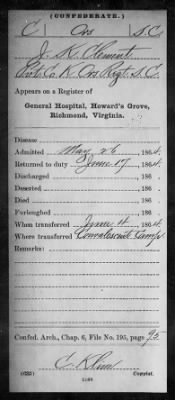 (CONFEDERATE.)
C Ors S.C.
J. K. Clement
Pvt Co. K. Ors Regt. S.C.
Appears on a Register of
General Hospital, Howard's Grove,
Richmond, Virginia.
Disease
Admitted May 26, 1864.
Returned to duty June 17, 1864.
Discharged , 186 .
Deserted , 186 .
Died , 186 .
Furloughed , 186 .
When transferred June 4, 1864.
Where transferred Convalescent Camp
Remarks:
Confed. Arch., Chap. 6, File No. 195, page 95
(635) Copyist.